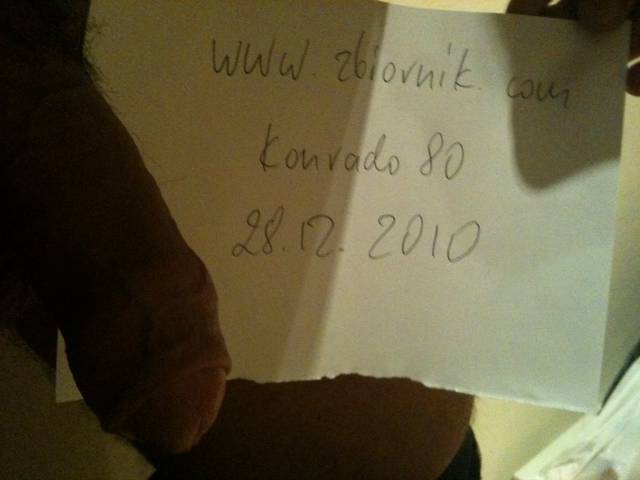 www.zbiornik.com
Konrado 80
28.12.2010